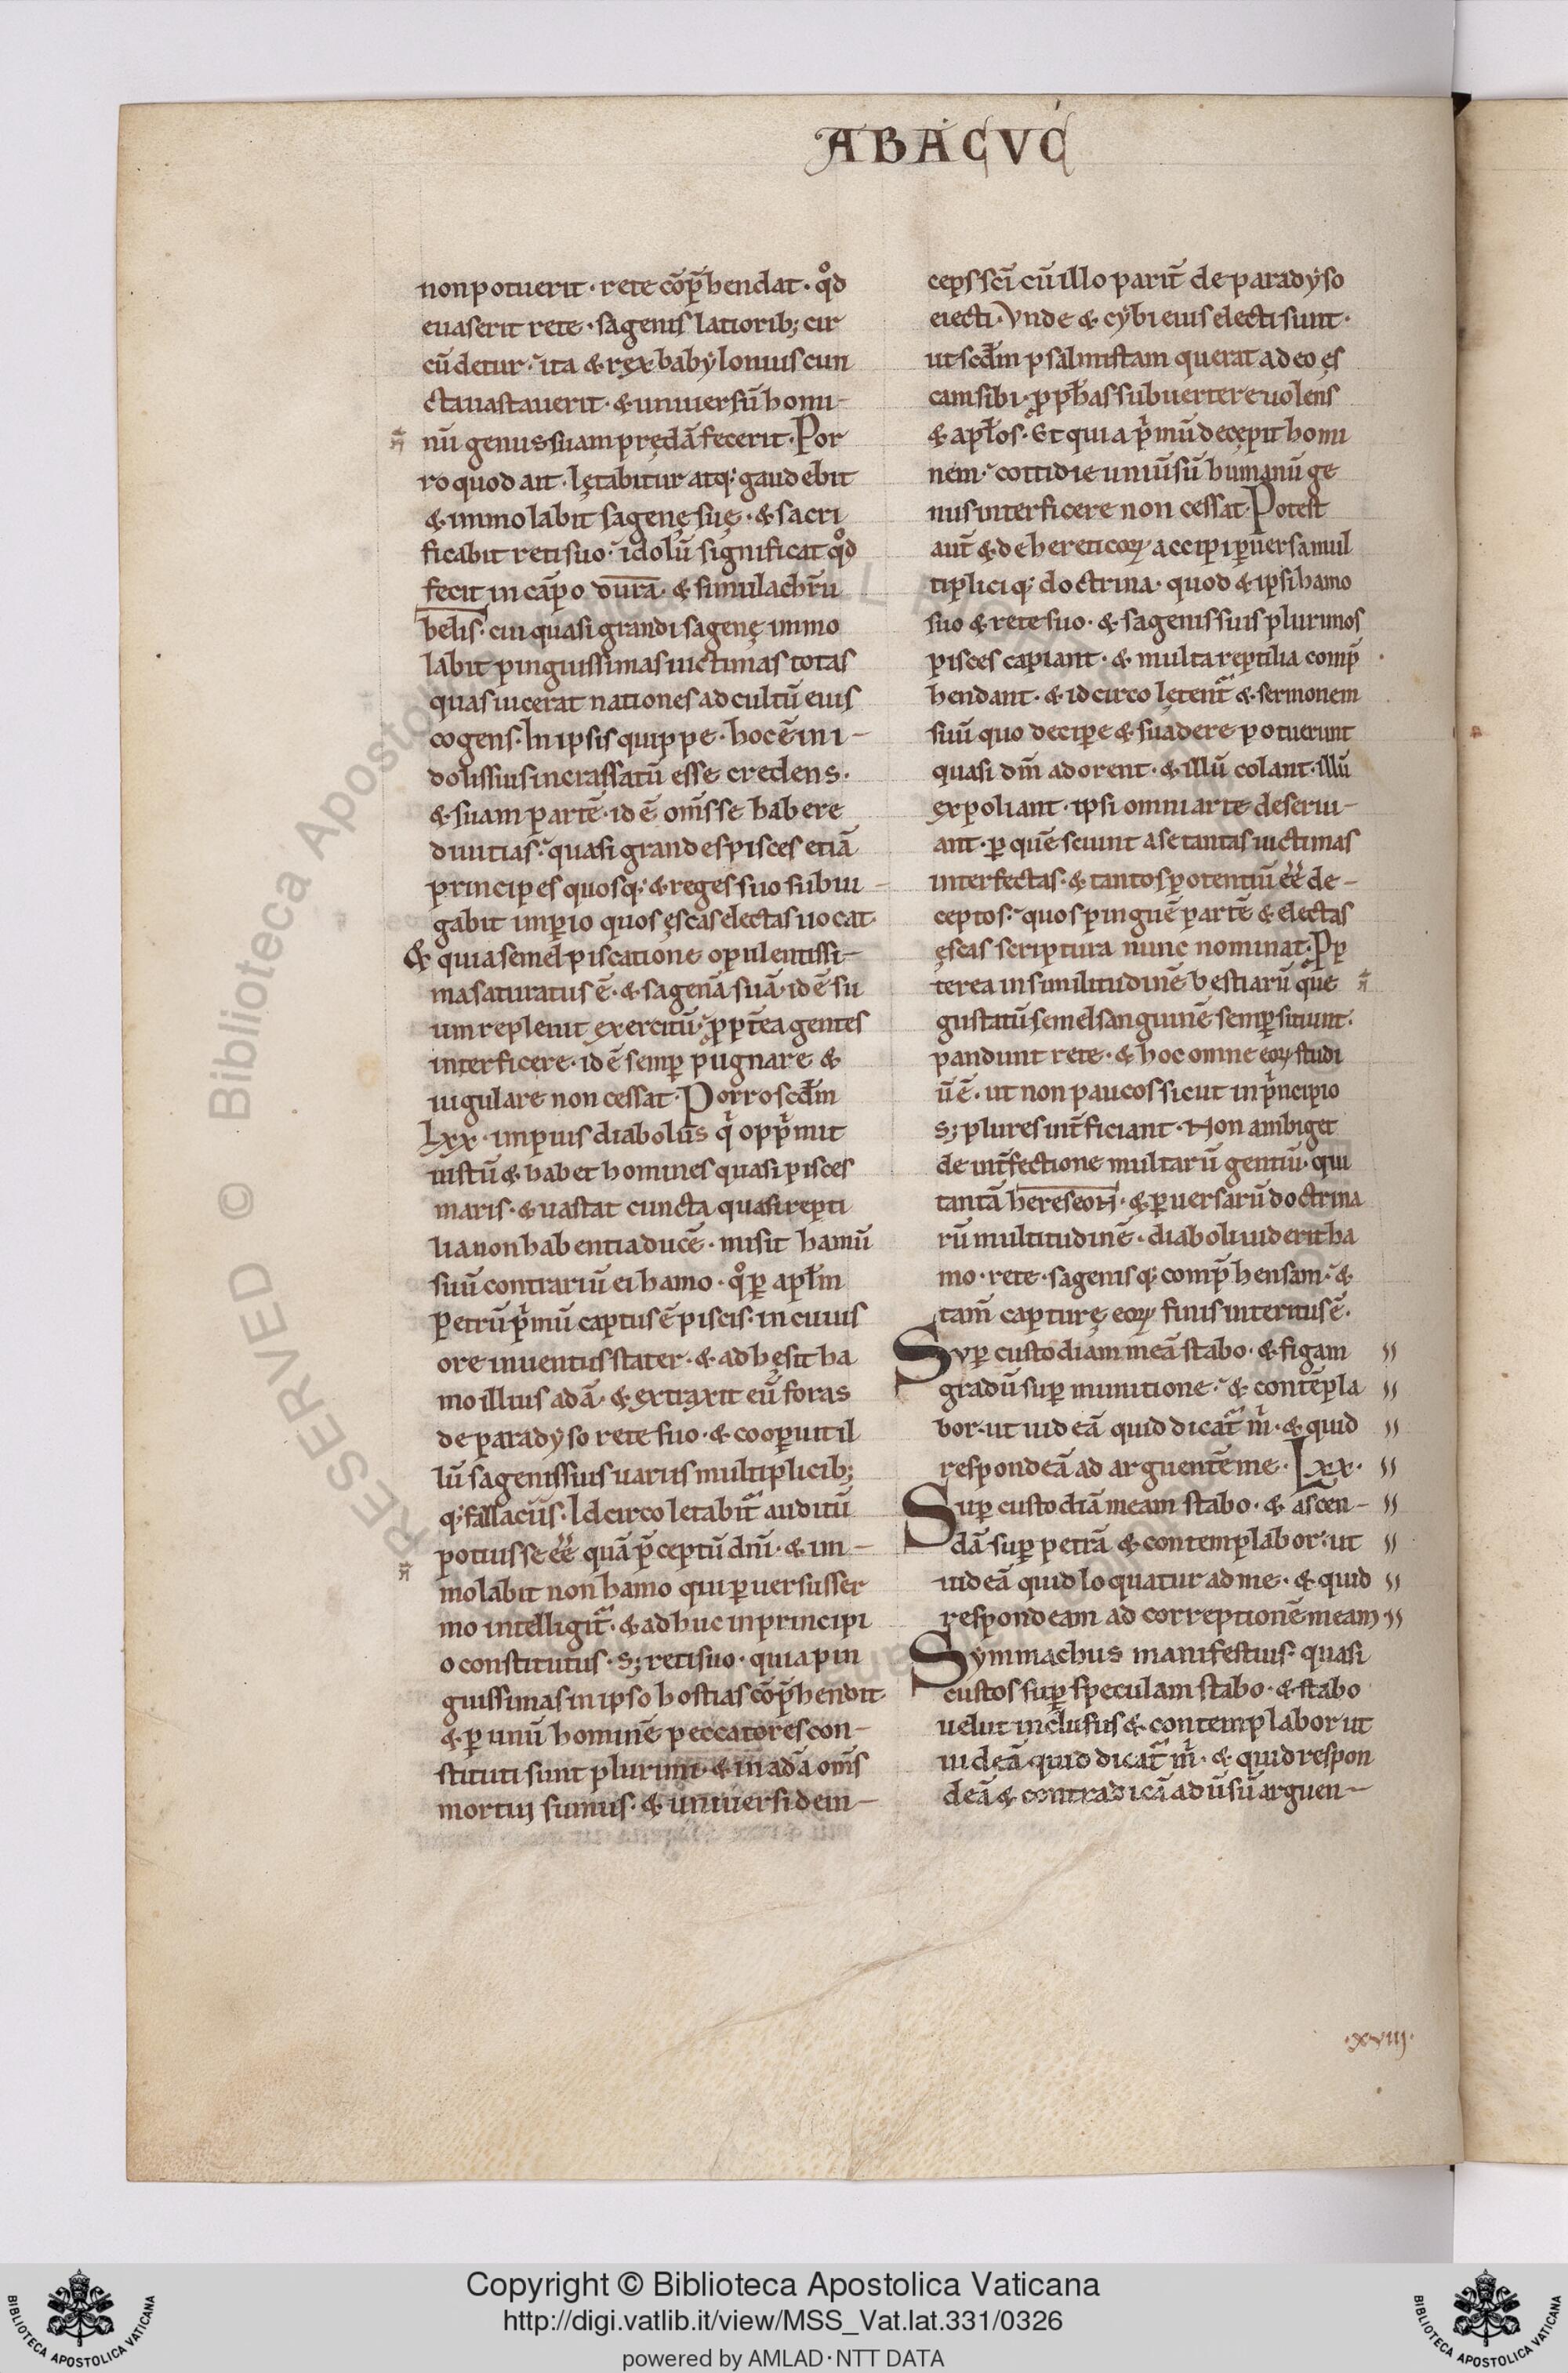 ABACVC
non potuerit · rete cōp̄hendat · qͦd
euaserit rete · sagenis latiorib; cir
cūdetur · ita & rex babylonius cun
cta uastauerit · & uniuersū homi-
nū genus suam prędā fecerit · Por
ro quod ait · lętabitur atq; gaudebit
& immolabit sagenę suę · & sacri
ficabit reti suo · idolū significat qͦd
fecit in cāpo dura · & simulachr̄u
belis · cui quasi grandi sagenę immo
labit pinguissimas uictimas totas
quas uicerat nationes ad cultū eius
cogens · In ipsis quippe · hoc ē in i-
dolis suis incrassatū esse credens ·
& suam partē · id ē om̄s se habere
diuitias · quasi grandes pisces etiā
principes quosq; & reges suo subiu-
gabit imꝑio quos ęscas electas uocat ·
& quia semel piscatione opulentissi-
ma saturatus ē · & sagenā suā · id ē su
um repleuit exercitū · ꝓpt̄ea gentes
interficere · id ē semꝑ pugnare &
iugulare non cessat · Porro scdm̄
Lxx · impius diabolus qi opp̍mit
iustū & habet homines quasi pisces
maris · & uastat cuncta quasi repti
lia non habentia ducē · misit hamū
suū contrariū ei hamo · qͦ ꝑ apłm
Petrū p̍mū captus ē piscis · in cuius
ore inuentus stater · & adhęsit ha
mo illius adā · & extraxit eū foras
de paradyso rete suo · & cooꝑuit il
lū sagenis suis uariis multiplicib;
q; fallaciis · Idcirco letabit᷑ auditū
potius se ēē quā p̄ceptū dn̄i · & im-
molabit non hamo qui ꝑuersus ser
mo intelligit᷑ · & adhuc in principi
o constitutus · s; reti suo · quia pin
guissimas in ipso hostias cōp̄hendit ·
& ꝑ unū hominē peccatores con-
stituti sunt plurimi · & in adā om̄s
mortui sumus · & uniuersi dein-
ceps sc̄i cū illo parit᷑ de paradyso
eiecti · Vnde & cybi eius electi sunt ·
ut scdm̄ psalmistam querat a deo ęs
cam sibi · ꝓph̄as subuertere uolens
& apłos · Et quia p̍mū decępit homi
nem · cottidie uniūsū humanū ge
nus interficere non cessat · Potest
aut̄ & de hereticoꝝ accipi ꝑuersa mul
tipliciq; doctrina · quod & ipsi hamo
suo & rete suo · & sagenis suis plurimos
pisces capiant · & multa reptilia comp̄
hendant · & idcirco lętent᷑ & sermonem
suū quo decipe & suadere potuerunt
quasi dm̄ adorent · & illū colant · illū
expoliant · ipsi omni arte deserui-
ant · ꝑ quē sciunt a se tantas uictimas
interfectas · & tantos potentiū ēē de-
ceptos · quos pinguē partē & electas
ęscas scriptura nunc nominat · Ꝓp
terea in similitudinē bestiarū que
gustatū semel sanguinē semꝑ sitiunt ·
pandunt rete · & hoc omne eoꝝ studi
ū ē · ut non paucos sicut in p̍ncipio
s; plures int̄ficiant · Non ambiget
de int̄fectione multarū gentiū · qui
tantā hereseon · & ꝑuersarū doctrina
rū multitudinē · diaboli uiderit ha
mo · rete · sagenisq; comp̄hensam · &
tam̄ capturę eoꝝ finis interitus ē ·
Suꝑ custodiam meā stabo · & figam
gradū suꝑ munitione · & contēpla
bor · ut uideā quid dicat᷑ m̍ · & quid
respondeā ad arguentē me · Lxx ·
Suꝑ custodiā meam stabo · & ascen-
dā suꝑ petrā & contemplabor · ut
uideā quid loquatur ad me · & quid
respondeam ad correptionē meam
Symmachus manifestius · quasi
custos suꝑ speculam stabo · & stabo
uelut inclusus & contemplabor ut
uideā quid dicat᷑ m̍ · & quid respon
deā & contradicā adūsū arguen-
·xviij·
© Biblioteca Apostolica Vaticana
RESERVED
Copyright © Biblioteca Apostolica Vaticana
http://digi.vatlib.it/view/MSS_Vat.lat.331/0326
powered by AMLAD·NTT DATA
BIBLIOTECA APOSTOLICA VATICANA
BIBLIOTECA APOSTOLICA VATICANA